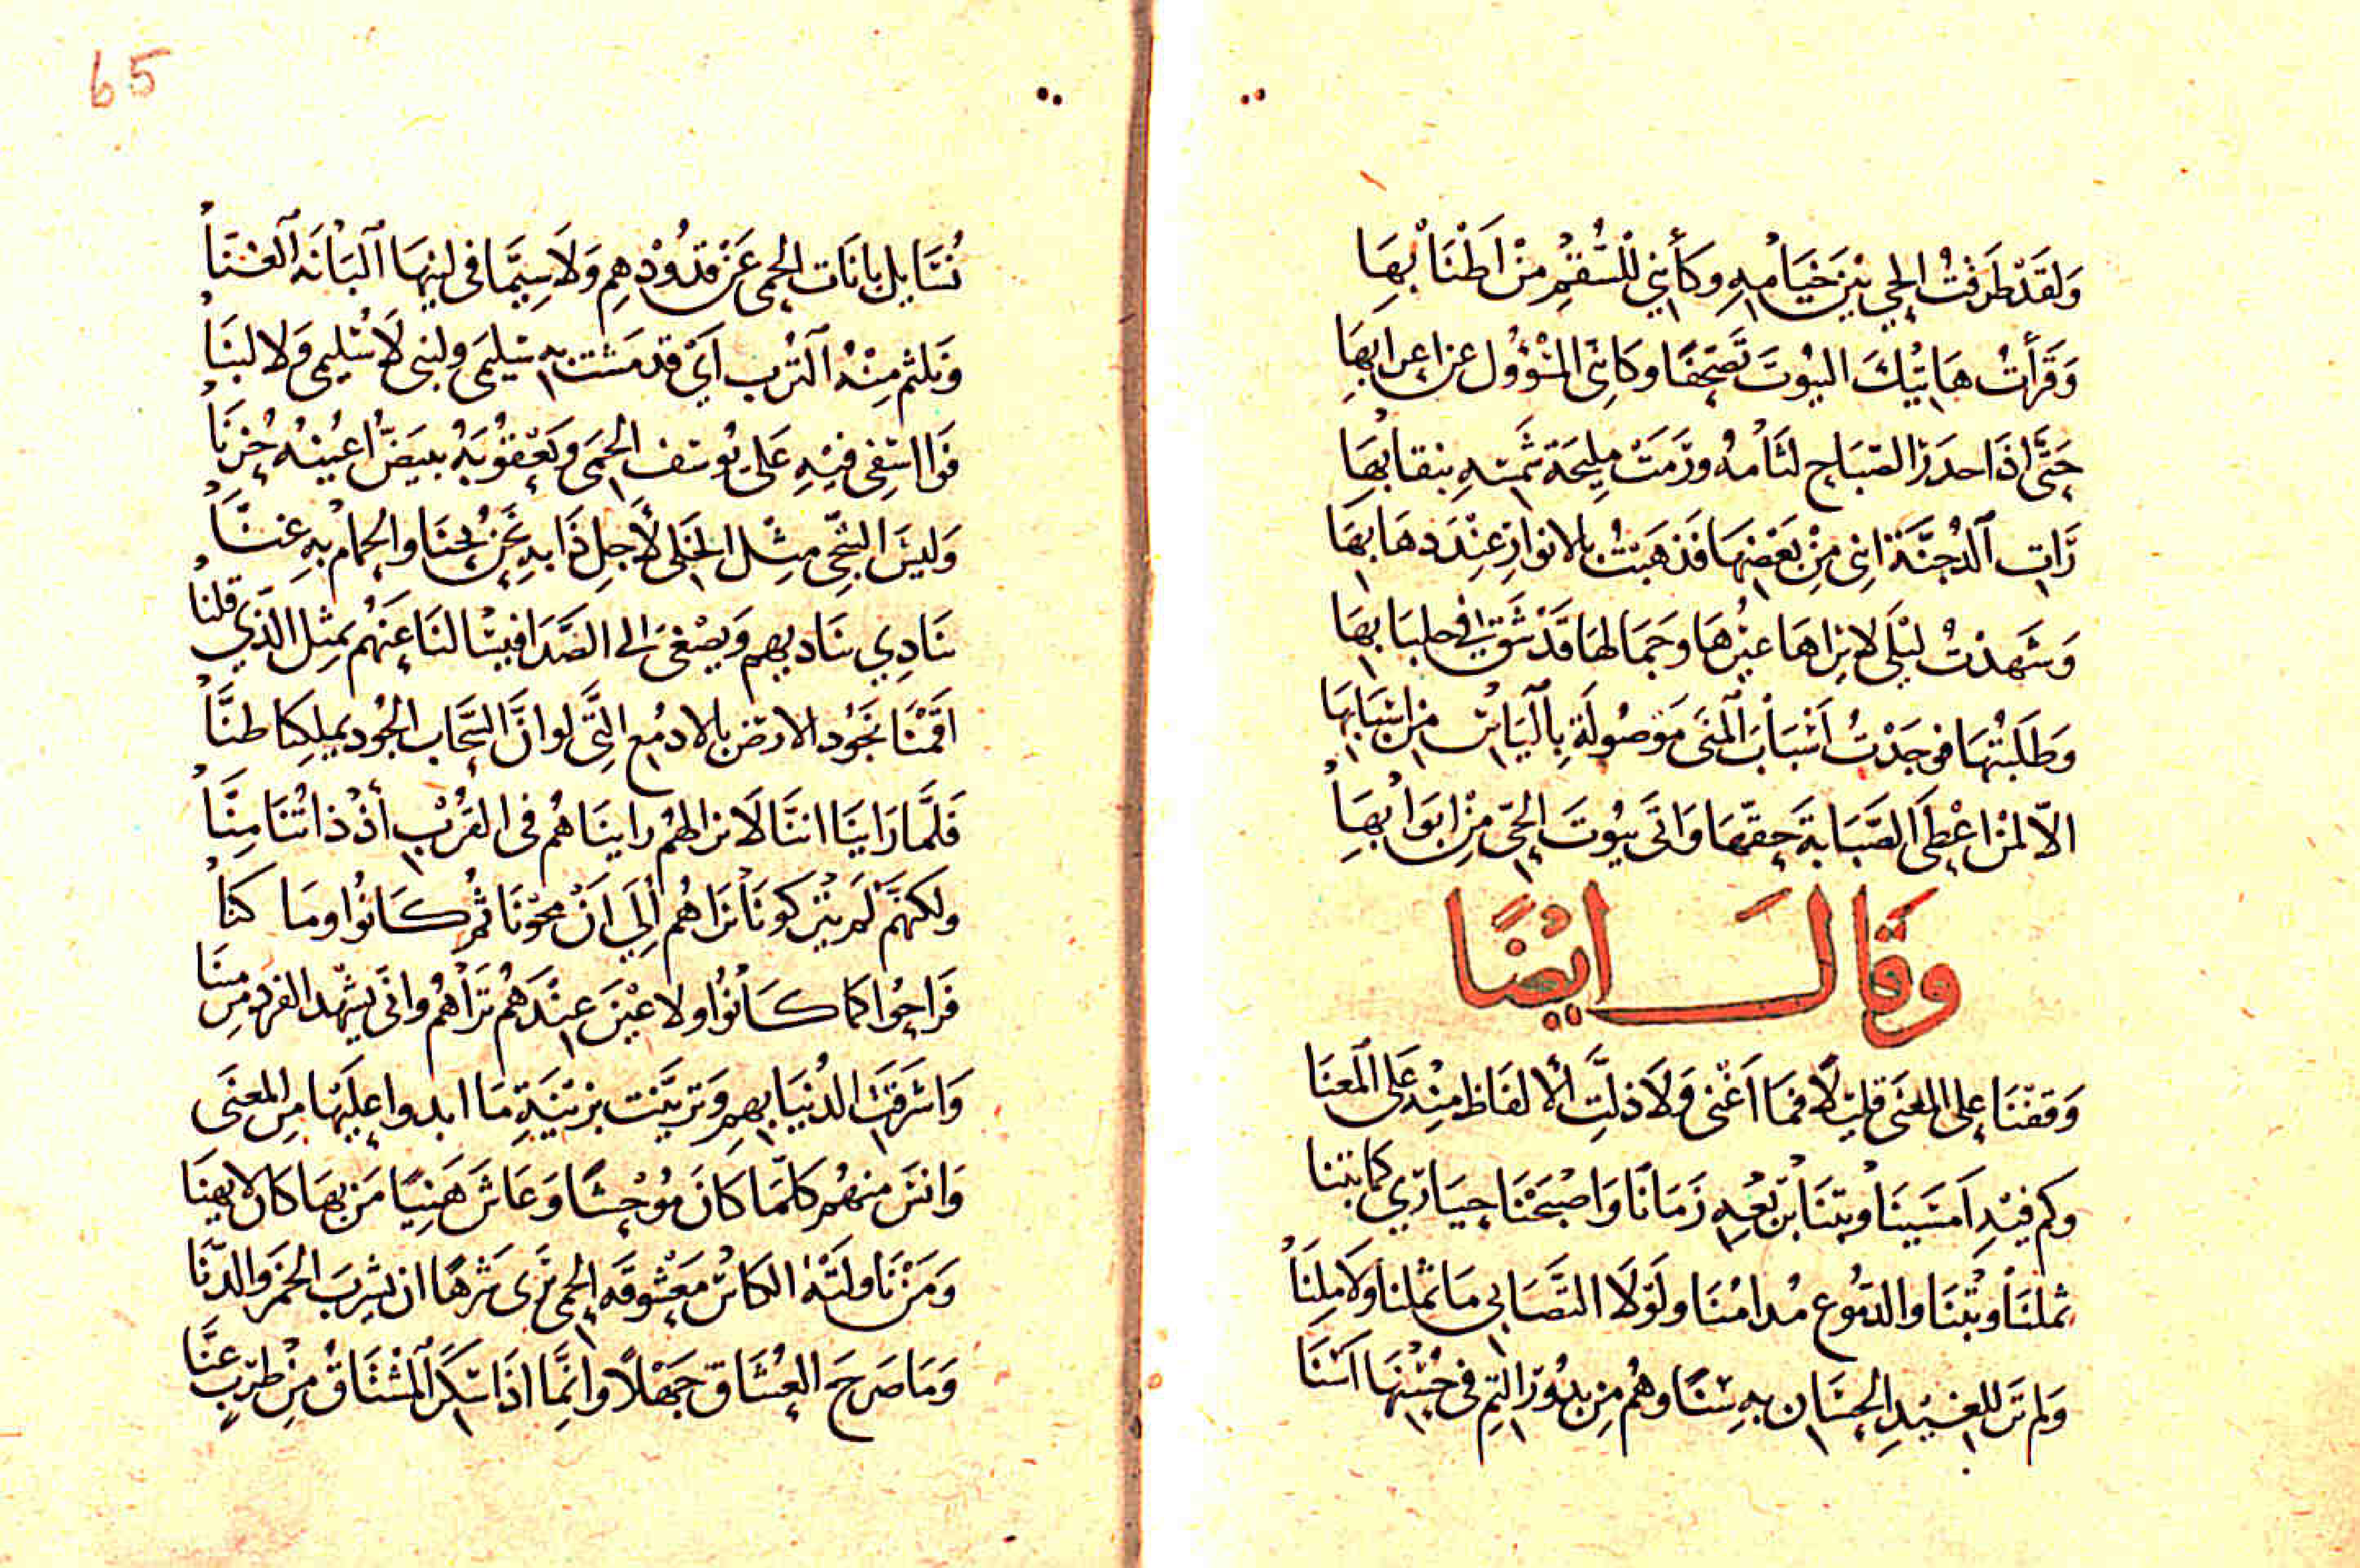 وَلَقَدْ طَرَقْتُ الحَي بَيْنَ خِيَامِهِ وكَأَنِي للسُّقْمِ مِنْ اَطْنَابِهَا
وَقَرَأْتُ هَاتِيْكَ البيُوتَ تَصَحُّفًا وكَانِّى المَسْؤُول عن اعرابِهَا
حَتَّى اذَا حدرَ الصّبَاح لثَامهُ ورَمَتْ مليحَة شمسِهِ بنقابهَا
رَات الدُجنَّة انِى مِنْ بَعْضِهَا فَذَهَبتُ بالانوار عِنْدَ دهَابهَا
وَشَهدْتُ ليْلَى لا يرَاهَا غيْرهَا وجَمَالهَا قَدْ شَقّ لى جلبَابهَا
وَطَلَبْتُهَا فوجَدْتُ اَسْبَابَ المنَى مَوْصُولَة بِاليَاس من اسْبَابهَا
الاّ لمنْ اعْطَى الصَّبَابةَ حقّهَا وَاتَى بيُوتَ الحَيّ مِنْ ابوَابهَا
وقَالَ ايْضًا
وَقَفْنَا على المغنَى قليلاً فمَا اَغْنى وَلاَ دَلَّتِ الالفَاظ مِنْه عَلى المعنَا
وكم فيْهِ اَمسَينَا وبتنَا بربْعِهِ زَمَانًا وَاصْبَحْنَا حيَارَى كمَا بتنا
ثملنَا وبتْنَا والدمُوع مُدامُنَا ولَوْلاَ التصَابى مَا ثملنا ولاَ مِلنَا
وَلم نَر للغيدِ الحِسَان بهِ سنًا وهُم مِن بدُوْر التِّم فى حُسْنهَا اَسْنَا
نُسَايل بانَات الحمى عَنْ قدُوْدهِم وَلاَ سِيَّمَا فى لينِهَا البَانَه الغنّا
وَنلثم مِنْهُ التُرْب اَنْ قد مَشت به سُليمَى ولبنى لاَ سُليمى وَلا لبنَا
فوا اسَفِى فيْهِ عَلى يُوسف الحمَى وَيَعْقُوبُهُ تبيَضّ اعيُنهُ حُزنَا
وَليسَ الشّجِى مثْل الخَلى لأجلِ ذَا بهِ نَحْنُ نُحنَا والحمَامُ بهِ غنَّا
ننَادِي بنَاديهِم وَيصْغى الى الصَّدَا فيسَْالنَا عَنهُم بمثِل الذَي قلنَا
اقَمْنَا نجُود الارض بالادمُع الَّتى لو انَّ السَّحَاب الجُود يملكهَا طنَّا
فَلمَّا رَايْنَا اننَّا لاَ نراهُم رايْنَاهُم فى القرْب أدْ ذاتُنَا مِنَّا
ولكنهَّم لَم يتْركونَا نرَاهُم اِلَى اَنْ محوْنَا ثُم كَانُوا ومَا كنّا
فَراحُوا كمَا كَانُوا ولا عَيْنَ عنْدَهُم ترَاهُم وانّى يشْهَد الفرد مِن مثنَا
وَاشْرَقَت الدُنْيَا بهِم وَتزيّنت بزِيْنَةِ مَا ابدوا عليْهَا مِن المعنَى
وَانسَ منهُم كلّمَا كانَ مُوْحِشًا وَعَاشَ هَنِيًا مَن بهَا كَان لا يهنَا
وَمَنْ نَاولتْهُ الكاسُ مَعْشُوقَه الحمى تَرى شرهًا ان يشربَ الخمَر والدّنَّا
وَمَا صَرحَ العُشّاق جهْلاً وانمَّا اذَا سَكرَ المشْتَاقُ مِنْ طرَبٍ غنَّا
65